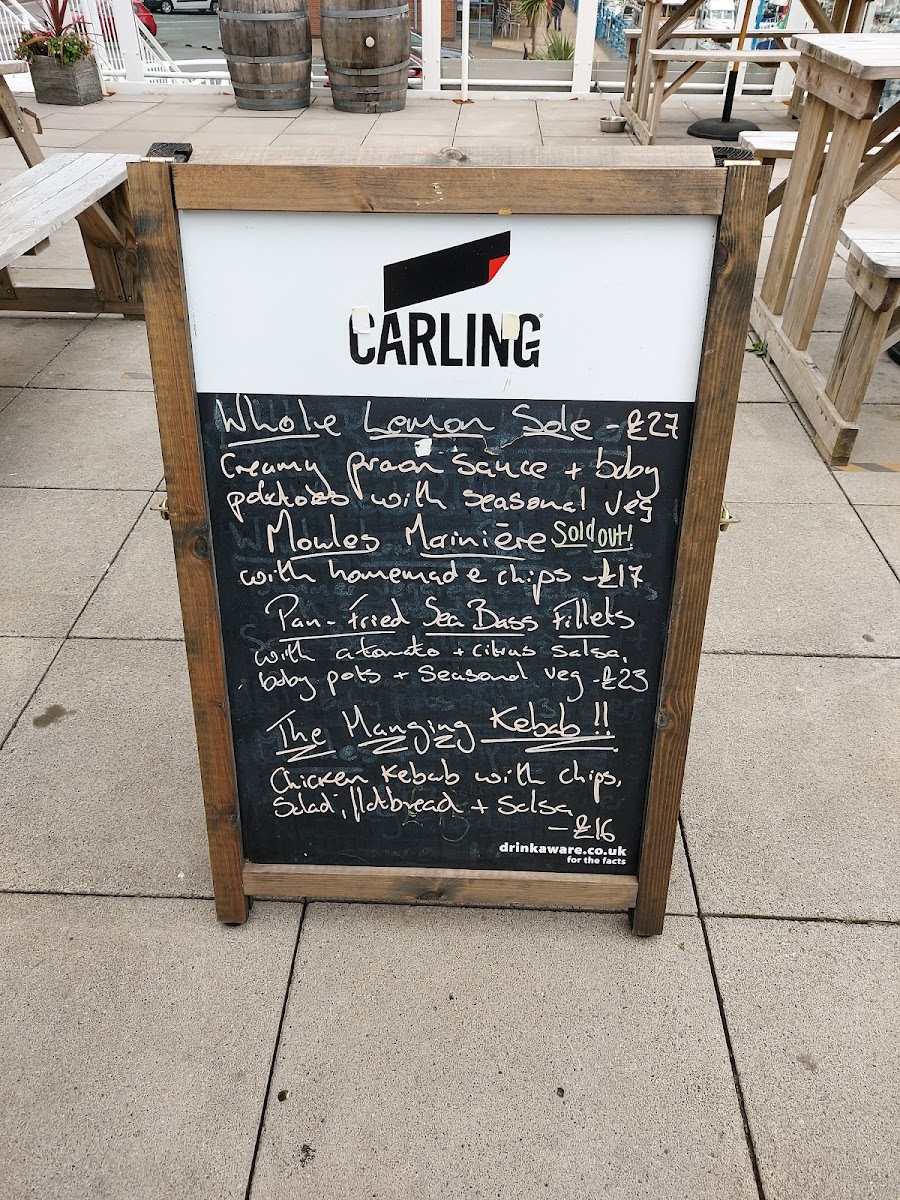 CARLING
Whole Lemon Sole - £27
Creamy prawn sauce + baby
potatoes with seasonal veg
Moules Marinière Sold out!
with homemade chips - £17
Pan-Fried Sea Bass Fillets
with a tomato + citrus salsa,
baby pots + Seasonal veg - £23
The Hanging Kebab!!
Chicken Kebab with chips,
Salad, flatbread + Salsa
- £16
drinkaware.co.uk
for the facts